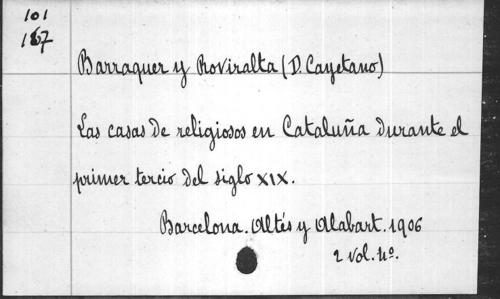 101
167
Barraquer y Roviralta (D. Cayetano)
Las casas de religiosos en Cataluña durante el
primer tercio del siglo XIX.
Barcelona. Altés y Alabart. 1906
2 vol. 4º.